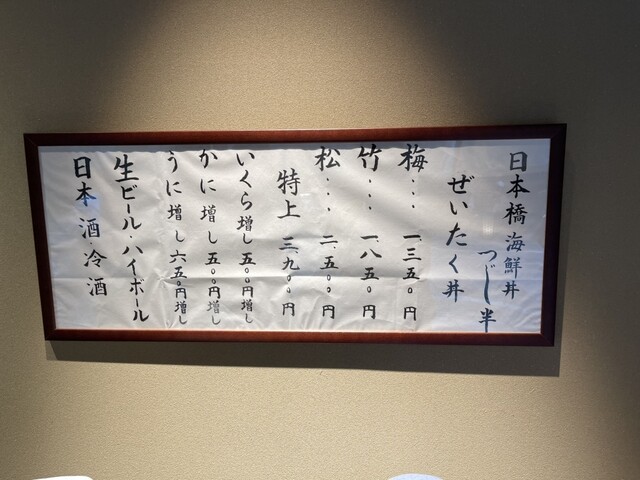 日本橋海鮮丼
つじ半
ぜいたく丼
梅・・・一、三五〇円
竹・・・一、八五〇円
松・・・二、五〇〇円
特上 三、九〇〇円
いくら増し 五〇〇円増し
かに増し 五〇〇円増し
うに増し 六五〇円増し
生ビール・ハイボール
日本酒・冷酒